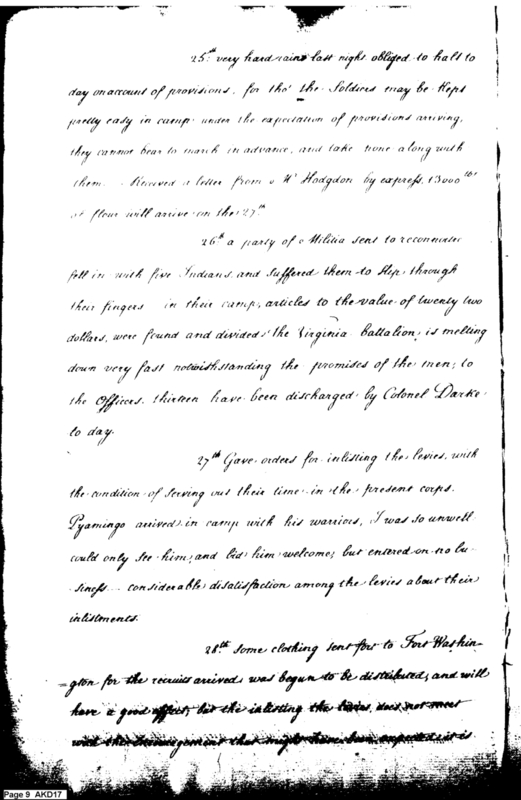 25th very hard raine last night obliged to halt to
day on account of provisions, for tho' the Soldiers may be kept
pretty easy in camp under the expectation of provisions arriving,
they cannot bear to march in advance, and take none along with
them. Received a letter from Mr Hodgdon by express, 13000 lbs
of flour will arrive on the 27th
26th a party of Militia sent to reconnoiter
fell in with five Indians and suffered them to slip through
their fingers in their camp, articles to the value of twenty two
dollars, were found and divided, the Virginia battalion, is melting
down very fast notwithstanding the promises of the men, to
the Officers. thirteen have been discharged by Colonel Darke
to day.
27th Gave orders for inlisting the levies, with
the condition of serving out their time in the present corps.
Pyamingo arrived in camp with his warriors, I was so unwell
could only see him, and bid him welcome, but entered on no bu-
siness considerable disatisfaction among the levies about their
inlistments.
28th Some clothing sent for to Fort Washin-
=gton for the recruits arrived was begun to be distributed, and will
have a good effect, but the inlisting the levies, does not meet
with the incouragement that might have been expected, it is
Page 9 AKD17